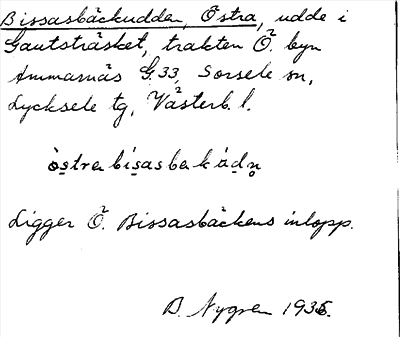 Bissasbäckudden, Östra, udde i
Gautsträsket, trakten Ö. byn
Ammarnäs G33, Sorsele sn,
Lycksele tg, Västerb. l.
östrabisasbakädn
Ligger Ö. Bissasbäckens inlopp.
B. Nygren 1935.